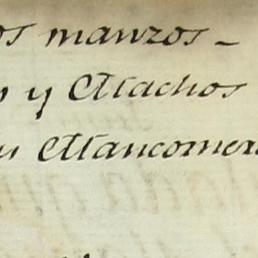 os manzos_
y Machos
Mancomer